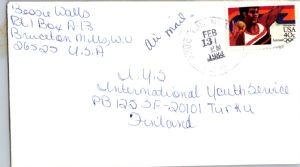 Bessie Walls
Rt. 1 Box A-13
Bruceton Mills, W.V
26525 U.S.A
Air mail
FEB
131
1984
USA
40c
I.Y.S
International Youth Service
PB 125 SF-20101 Turku
Finland